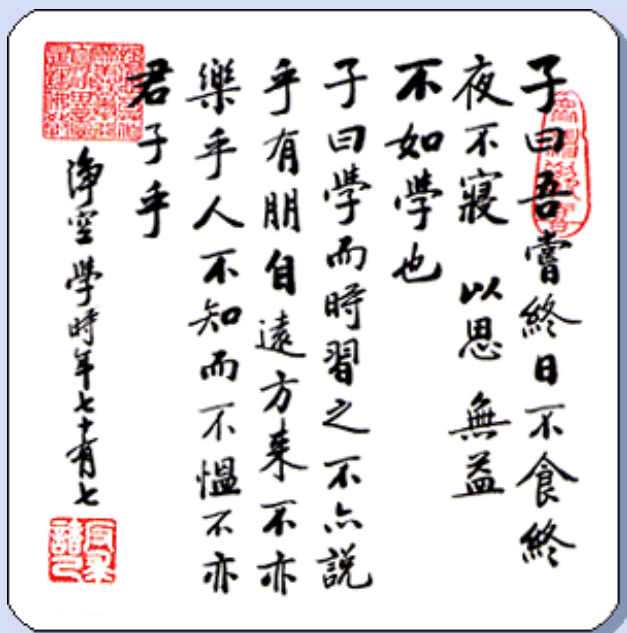 子曰吾嘗終日不食終
夜不寢以思無益
不如學也
子曰學而時習之不亦説
乎有朋自遠方来不亦
樂乎人不知而不慍不亦
君子乎
淨空學時年七十有七
反求諸己